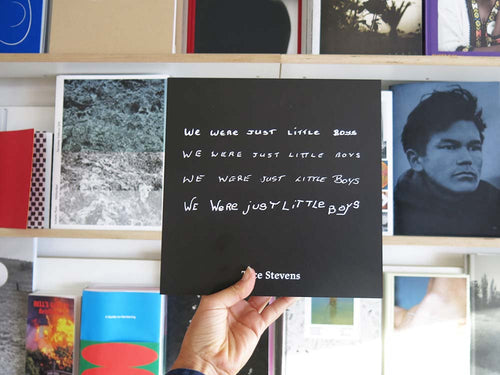 We were just little boys
We were just little boys
We were just little Boys
We Were just Little Boys
Stevens